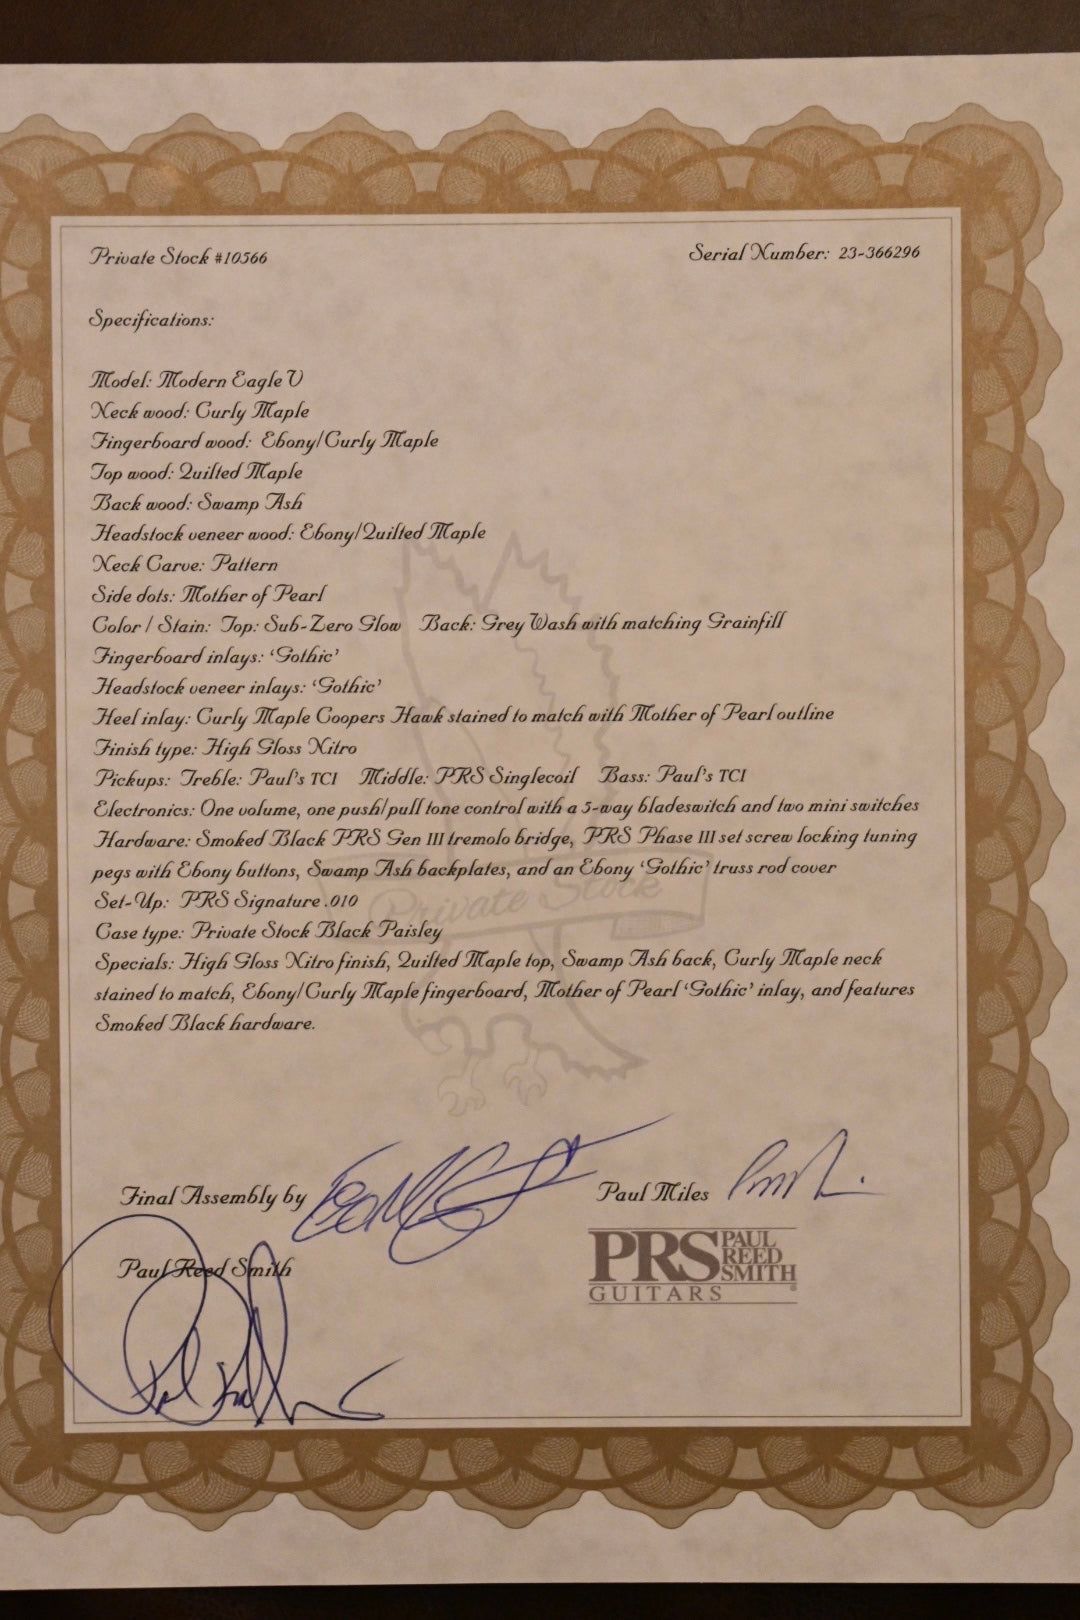 Private Stock #10566
Serial Number: 23-366296
Specifications:
Model: Modern Eagle V
Neck wood: Curly Maple
Fingerboard wood: Ebony/Curly Maple
Top wood: Quilted Maple
Back wood: Swamp Ash
Headstock veneer wood: Ebony/Quilted Maple
Neck Carve: Pattern
Side dots: Mother of Pearl
Color / Stain: Top: Sub-Zero Glow Back: Grey Wash with matching Grainfill
Fingerboard inlays: 'Gothic'
Headstock veneer inlays: 'Gothic'
Heel inlay: Curly Maple Coopers Hawk stained to match with Mother of Pearl outline
Finish type: High Gloss Nitro
Pickups: Treble: Paul's TCI Middle: PRS Singlecoil Bass: Paul's TCI
Electronics: One volume, one push/pull tone control with a 5-way bladeswitch and two mini switches
Hardware: Smoked Black PRS Gen III tremolo bridge, PRS Phase III set screw locking tuning
pegs with Ebony buttons, Swamp Ash backplates, and an Ebony 'Gothic' truss rod cover
Private Stock
Set-Up: PRS Signature .010
Case type: Private Stock Black Paisley
Specials: High Gloss Nitro finish, Quilted Maple top, Swamp Ash back, Curly Maple neck
stained to match, Ebony/Curly Maple fingerboard, Mother of Pearl 'Gothic' inlay, and features
Smoked Black hardware.
Final Assembly by
Paul Miles
Paul Reed Smith
PRS PAUL REED SMITH
GUITARS